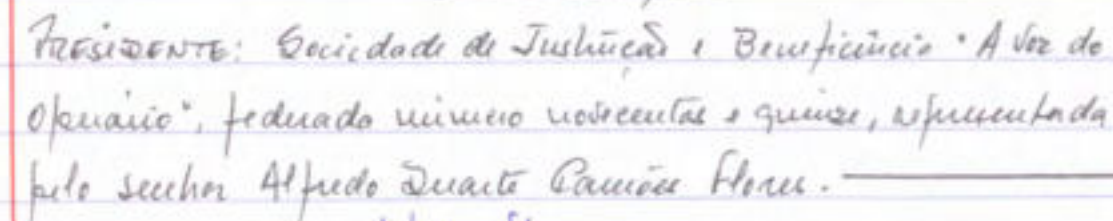 PRESIDENTE: Sociedade de Instrução e Beneficência "A Voz do
Operário", federada número novecentos e quinze, representada
pelo senhor Alfredo Duarte Camões Flores.